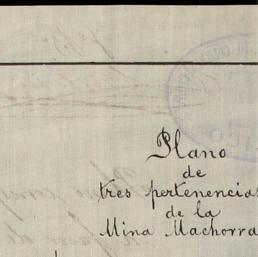 Plano
de
tres pertenencias
de la
Mina Machorra